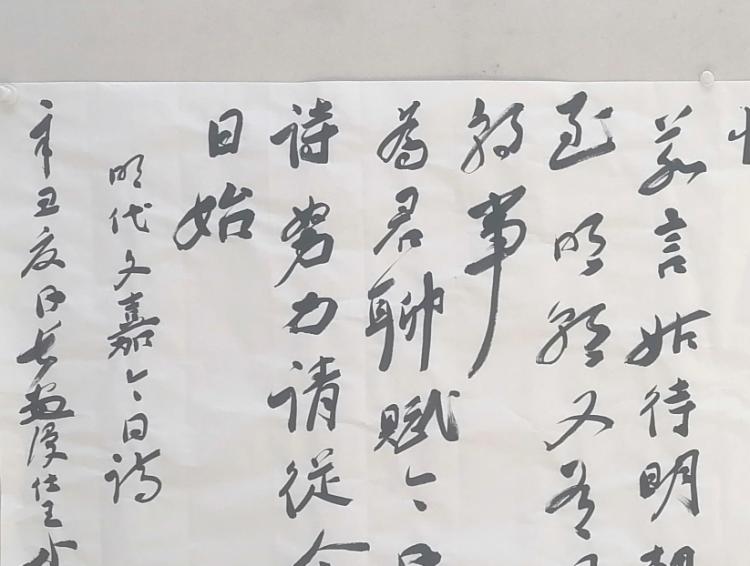 若言姑待明朝
至明朝又有明
朝事
為君聊賦今日
诗努力请從今
日始
明代文嘉今日诗
辛丑夏月